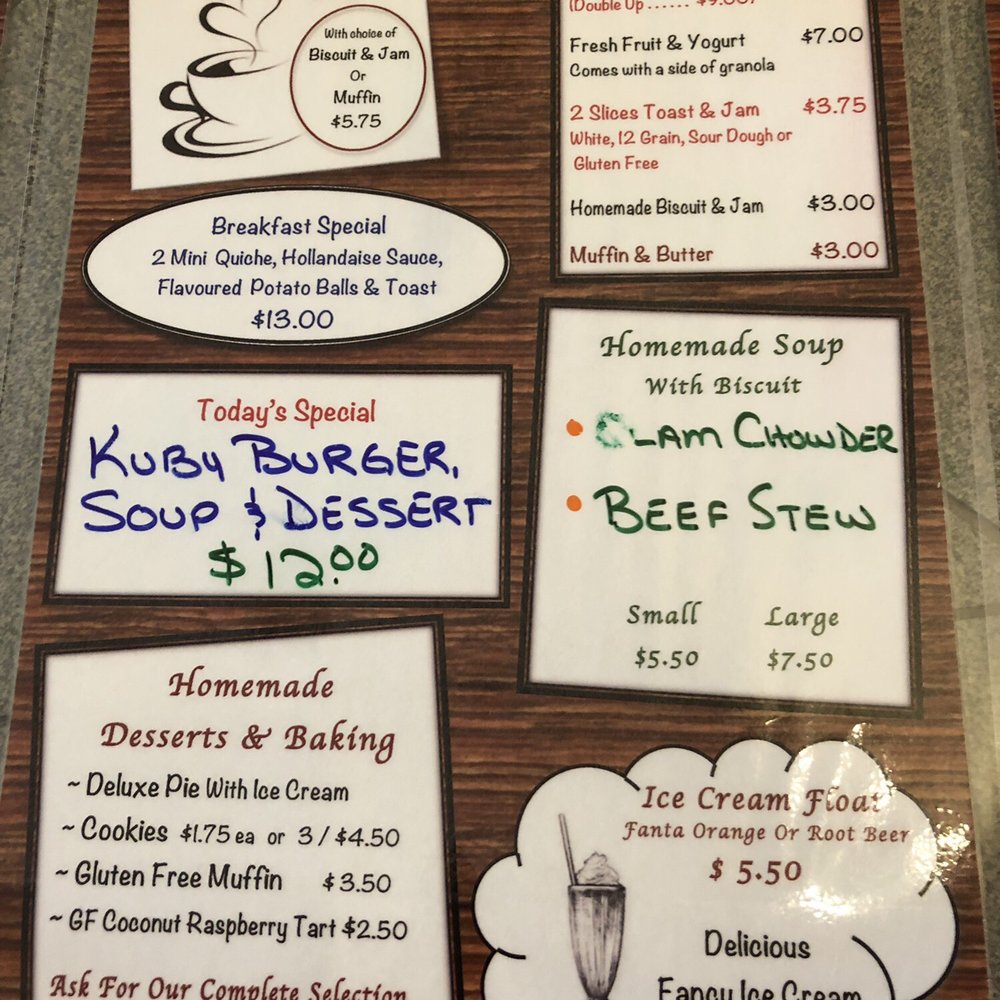 With choice of
Biscuit & Jam
Or
Muffin
$5.75
(Double Up ...... $9.00)
Fresh Fruit & Yogurt $7.00
Comes with a side of granola
2 Slices Toast & Jam $3.75
White, 12 Grain, Sour Dough or
Gluten Free
Homemade Biscuit & Jam $3.00
Muffin & Butter $3.00
Breakfast Special
2 Mini Quiche, Hollandaise Sauce,
Flavoured Potato Balls & Toast
$13.00
Today's Special
KUBY BURGER,
SOUP & DESSERT
$12.00
Homemade Soup
With Biscuit
• CLAM CHOWDER
• BEEF STEW
Small Large
$5.50 $7.50
Homemade
Desserts & Baking
~ Deluxe Pie With Ice Cream
~ Cookies $1.75 ea or 3 / $4.50
~ Gluten Free Muffin $3.50
~ GF Coconut Raspberry Tart $2.50
Ask For Our Complete Selection
Ice Cream Float
Fanta Orange Or Root Beer
$ 5.50
Delicious
Fancy Ice Cream